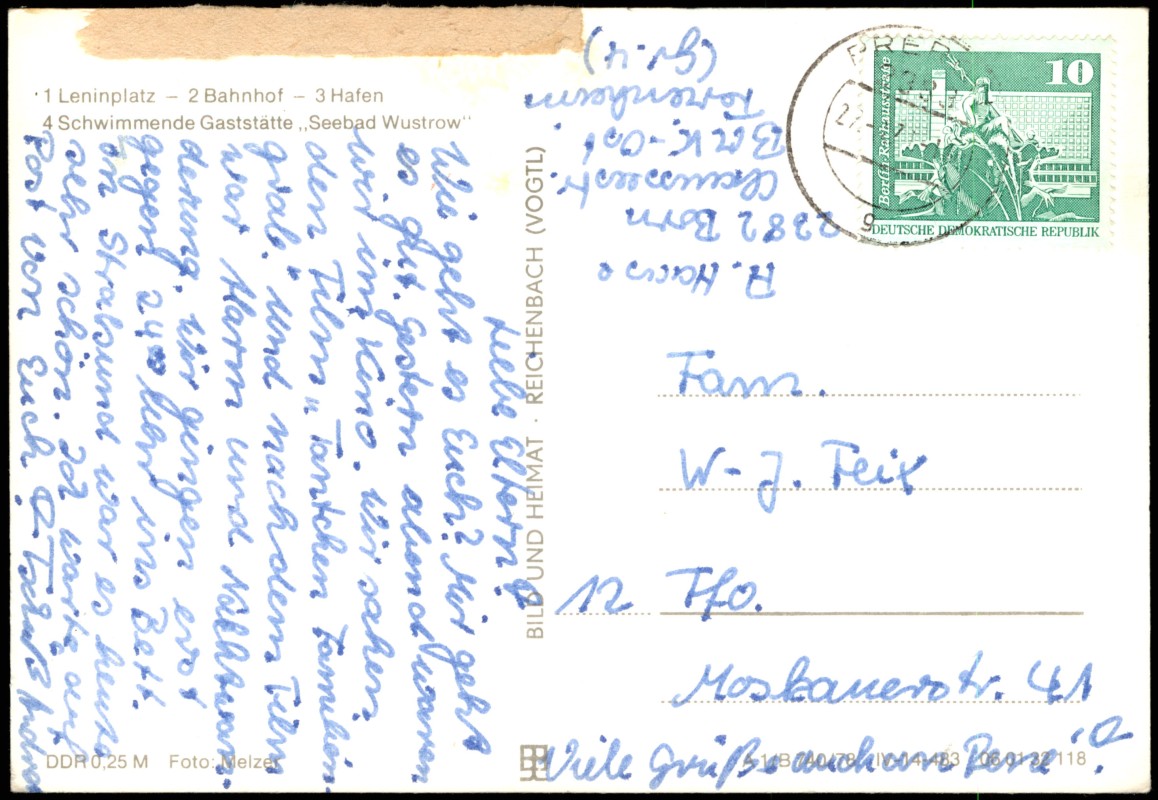 1 Leninplatz – 2 Bahnhof – 3 Hafen
4 Schwimmende Gaststätte „Seebad Wustrow"
Liebe Eltern!
Wie geht es Euch? Mir geht
es gut. Gestern abend waren
wir im Kino. Wir sahen
den Film „Tantchen
Und nach dem Film
war Alarm und
derung. Wir gingen erst
gegen 24⁰⁰ Uhr ins Bett.
In Stralsund war es heute
sehr schön. Ich warte auf
Post von Euch. Tschüß Andrea
DDR 0,25 M Foto: Melzer
BILD UND HEIMAT · REICHENBACH (VOGTL)
A.
2382 Born
BAK-Ost
Ferienheim
(Gr. 4)
10
Berlin-Rathausstrasse
DEUTSCHE DEMOKRATISCHE REPUBLIK
Fam.
W-J. Feix
12 Ffo.
Moskauerstr. 41
Viele Grüße auch an
A 1/B 740/78 IV-14-483 06 01 32 118